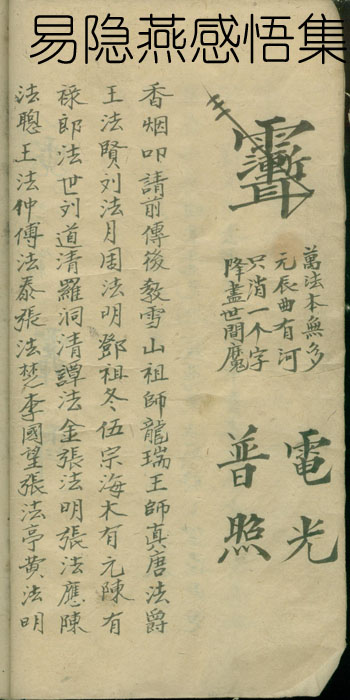 易隐燕感悟集
萬法本無多
元辰曲有河
只消一个字
降盡世間魔
電光
普照
香烟叩請前傳後教雪山祖師龍瑞王師真唐法爵
王法賢刘法月周法明鄧祖冬伍宗海木有元陳有
禄郎法世刘道清羅洞清譚法金張法明張法應陳
法聰王法仲傅法泰張法楚李國望張法亭黄法明